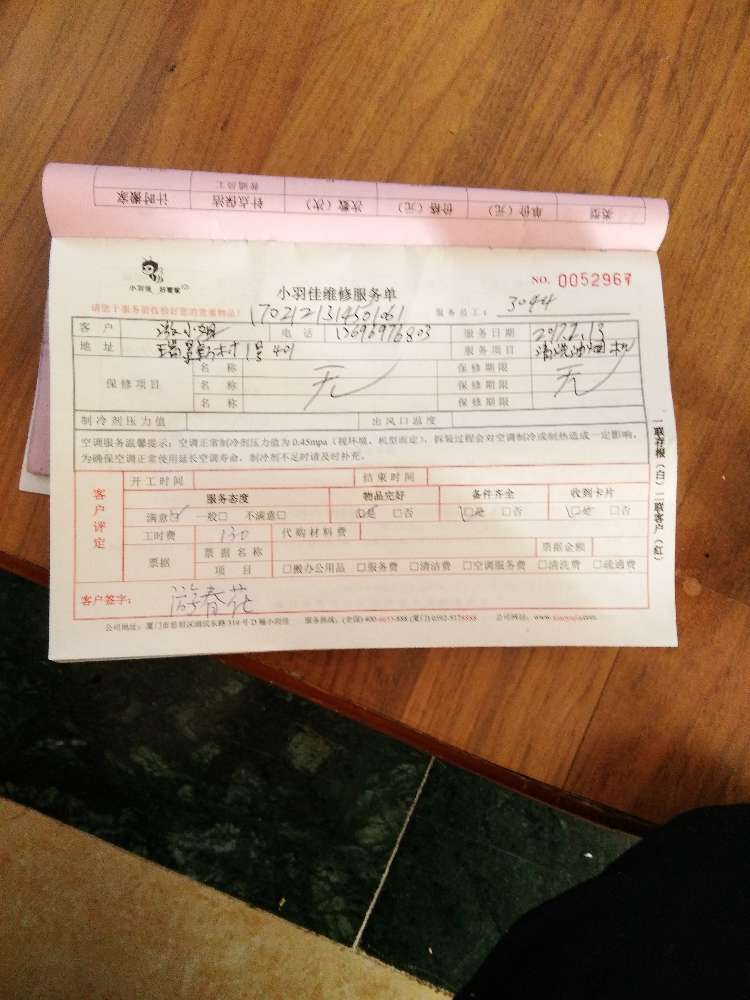 计时搬家 钟点保洁 次数（次） 价格（元） 单价（元） 类型
普通员工
小羽佳 好管家
小羽佳维修服务单
NO. 0052967
请您于服务前收拾好您的贵重物品!
170212131450161
服务员工: 3044
客户 游小姐 电话 13696976803 服务日期 2017.2.13
地址 瑞景新村1号401 服务项目 清洗油烟机
保修项目
名称 无 保修期限 无
名称 保修期限
名称 保修期限
制冷剂压力值 出风口温度
空调服务温馨提示: 空调正常制冷剂压力值为0.45mpa（视环境、机型而定），拆装过程会对空调制冷或制热造成一定影响，
为确保空调正常使用延长空调寿命，制冷剂不足时请及时补充。
客户评定
开工时间 结束时间
服务态度 物品完好 备件齐全 收到卡片
满意☑ 一般□ 不满意□ ☑是 □否 ☑是 □否 ☑是 □否
工时费 130 代购材料费
票据 票据名称 票据金额
项目 □搬办公用品 □服务费 □清洁费 □空调服务费 □清洗费 □疏通费
客户签字: 游春花
服务热线: (全国)400-6655-888 (厦门)0592-5178888
公司网址: www.xiaoyujia.com
一联存根（白）二联客户（红）